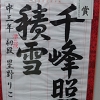 賞
千峰照
積雪
中三年 初段 星野りこ